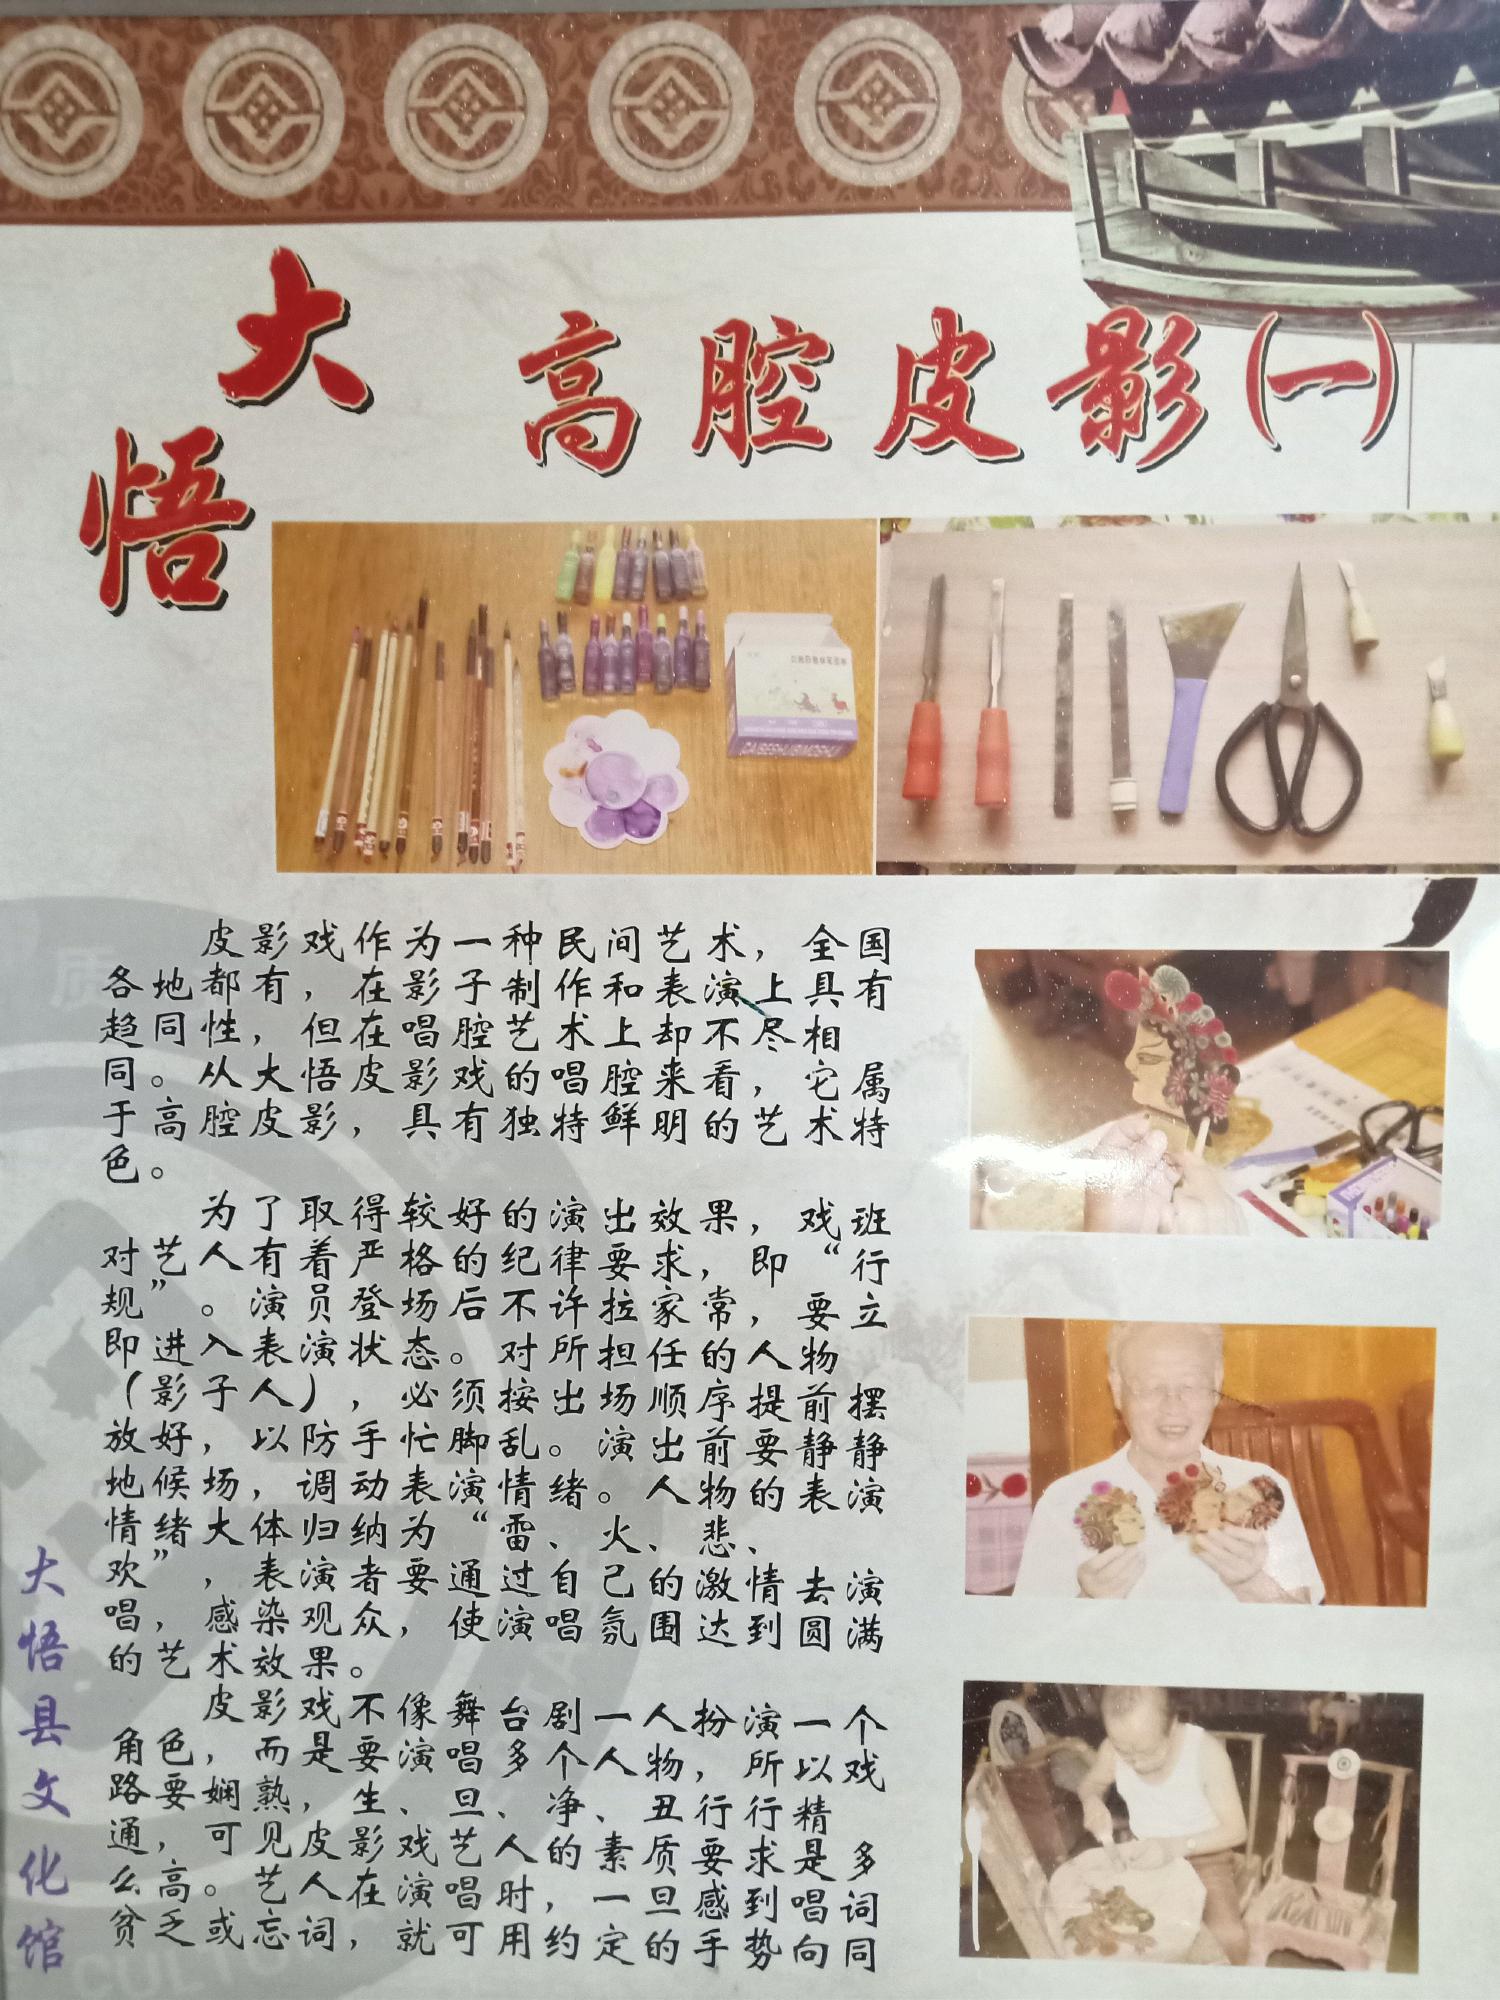 大悟
高腔皮影(一)
皮影戏作为一种民间艺术，全国
各地都有，在影子制作和表演上具有
趋同性，但在唱腔艺术上却不尽相
同。从大悟皮影戏的唱腔来看，它属
于高腔皮影，具有独特鲜明的艺术特
色。
为了取得较好的演出效果，戏班
对艺人有着严格的纪律要求，即“行
规”。演员登场后不许拉家常，要立
即进入表演状态。对所担任的人物
（影子人），必须按出场顺序提前摆
放好，以防手忙脚乱。演出前要静静
地候场，调动表演情绪。人物的表演
情绪大体归纳为“雷、火、悲、
欢”，表演者要通过自己的激情去演
唱，感染观众，使演唱氛围达到圆满
的艺术效果。
皮影戏不像舞台剧一人扮演一个
角色，而是要演唱多个人物，所以戏
路要娴熟，生、旦、净、丑行行精
通，可见皮影戏艺人的素质要求是多
么高。艺人在演唱时，一旦感到唱词
贫乏或忘词，就可用约定的手势向同
大悟县文化馆
质